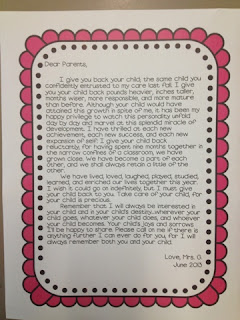 Dear Parents,
I give you back your child, the same child you
confidently entrusted to my care last fall. I give
you your child back pounds heavier, inches taller,
months wiser, more responsible, and more mature
than before. Although your child would have
attained this growth in spite of me, it has been my
happy privilege to watch this personality unfold
day by day and marvel at this splendid miracle of
development. I have thrilled at each new
achievement, each new success, and each new
expansion of self. I give your child back
reluctantly, for having spent nine months together in
the narrow confines of a classroom, we have
grown close. We have become a part of each
other, and we shall always retain a little of the
other.
We have lived, loved, laughed, played, studied,
learned, and enriched our lives together this year.
I wish it could go on indefinitely, but I must give
your child back to you. Take care of your child, for
your child is precious.
Remember that I will always be interested in
your child and in your child's destiny, wherever your
child goes, whatever your child does, and whoever
your child becomes. Your child's joys and sorrows
I'll be happy to share. Please call on me if there is
anything further I can ever do for you, for I will
always remember both you and your child.
Love, Mrs. O.
June 2013